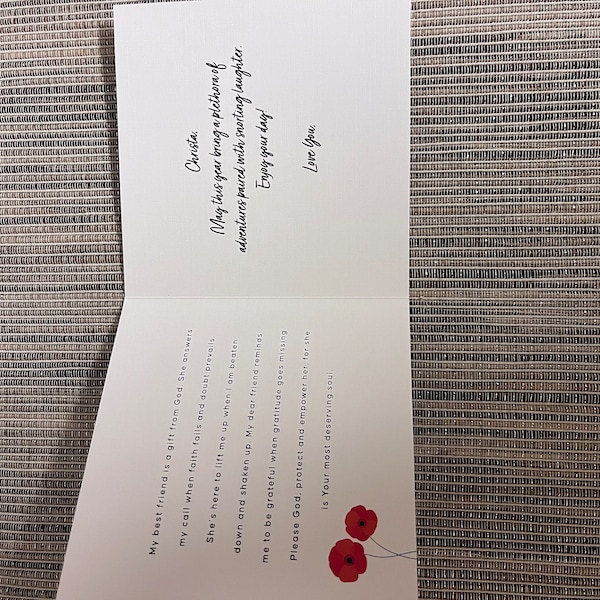 My best friend is a gift from God. She answers
my call when faith fails and doubt prevails
She's here to lift me up when I am beaten
down and shaken up. My dear friend reminds
me to be grateful when gratitude goes missing
Please God, protect and empower her, for she
is Your most deserving soul.
Christa,
May this year bring a plethora of
adventures paired with snorting laughter.
Enjoy your day!
Love You,